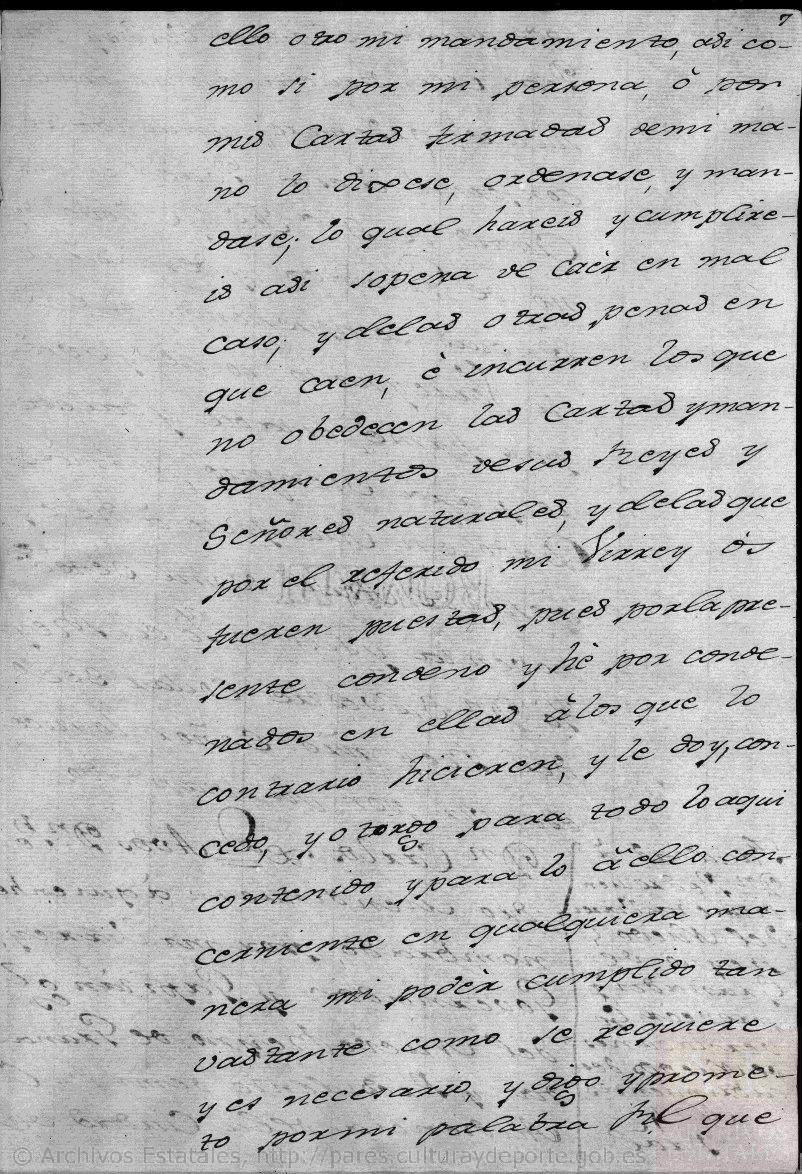 7
ello otro mi mandamiento, asi co-
mo si por mi persona, ò por
mis Cartas firmadas demi ma-
no lo dixese, ordenase, y man-
dase; lo qual hareis y cumplire-
is asi sopena de caèr en mal
caso; y delas otras penas en
que caen, è incurren los que
no obedecen las Cartas yman-
damientos desus Reyes y
Señores naturales, y delas que
por el referido mi Virrey ôs
fueren puestas, pues porla pre-
sente condeno y hè por conde-
nados en ellas âlos que lo
contrario hicieren, y le doy, con-
cedo, y otorgo para todo loaqui
contenido, ypara lo âello con-
cerniente en qualquiera ma-
nera mi podèr cumplido tan
vastante como se requiere
y es necesario, y digo yprome-
to pormi palabra Rl que
© Archivos Estatales, http://pares.culturaydeporte.gob.es